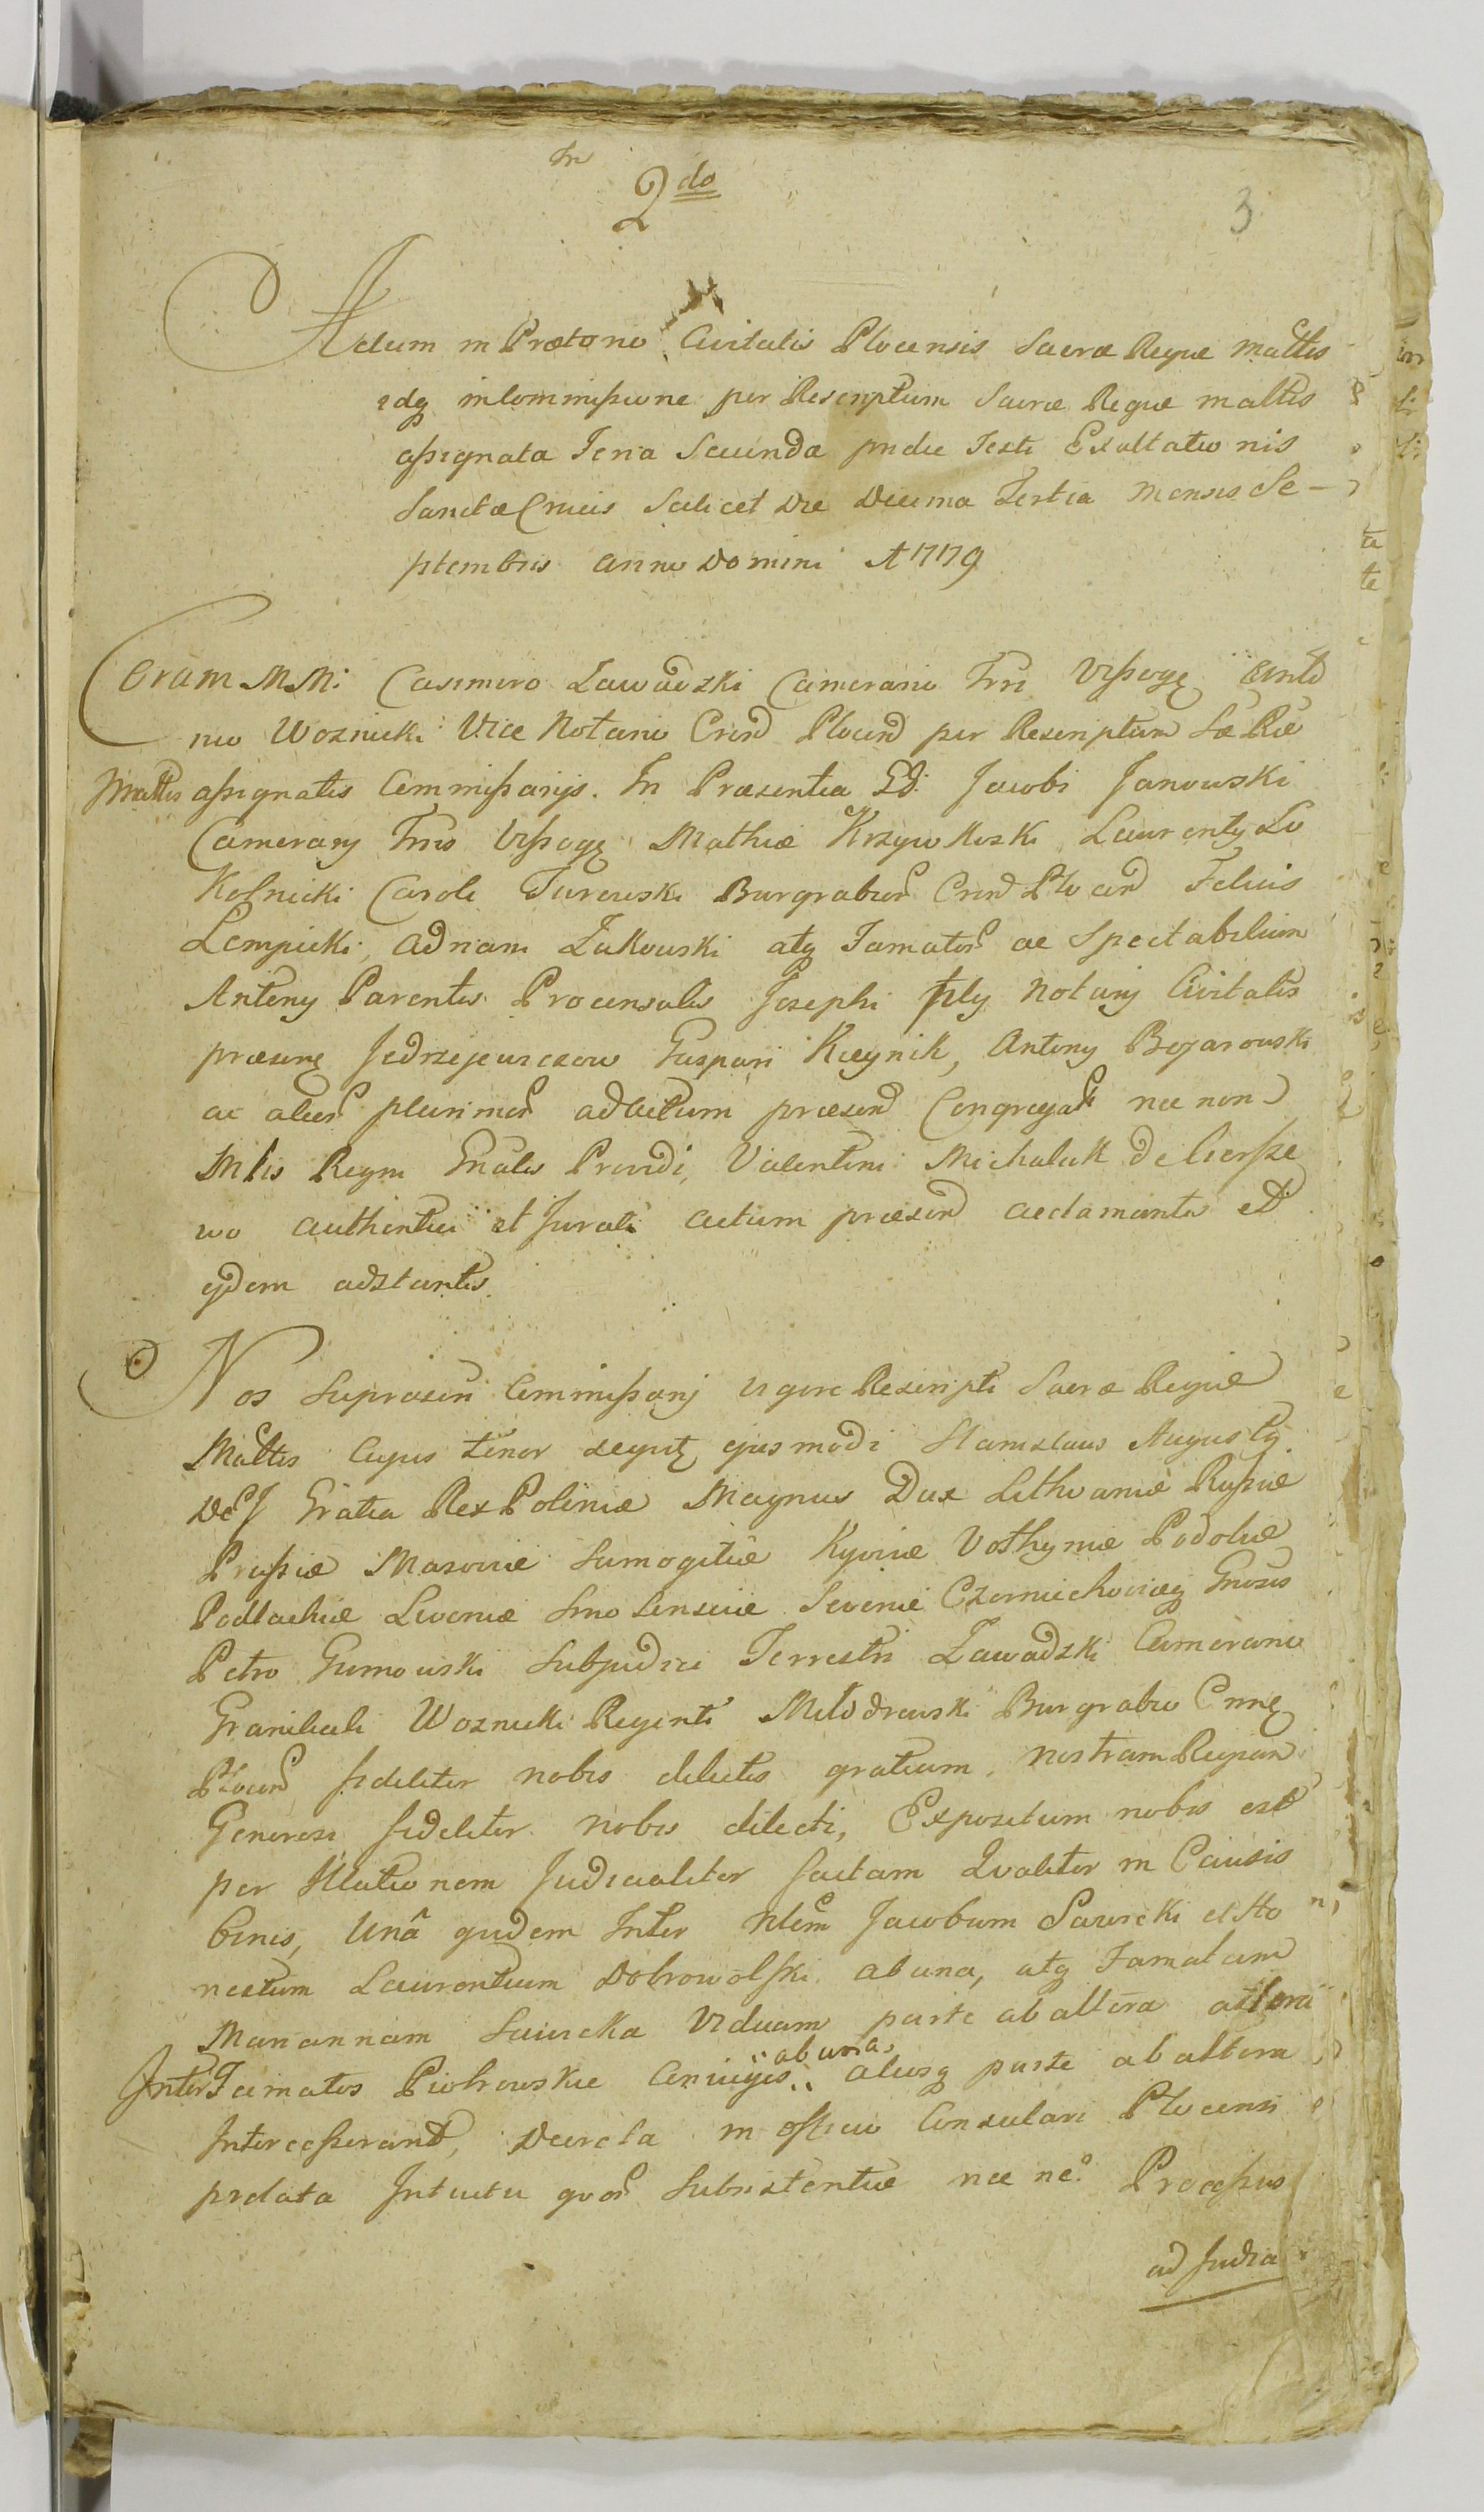 In
2do
3
Actum in Prætorio Civitatis Plocensis Sacræ Regiæ Mattis
idq in Commissione per Rescriptum Sacræ Regiæ Mattis
assignata Feria Secunda pridie Festi Exaltatio nis
Sanctæ Crucis Scilicet Die Decima Tertia Mensis Se-
ptembris Anno Domini A 1779
Coram MM: Casimiro Zawadzki Camerario Trri Vissogę Anto
nio Woznicki Vice Notario Crend Plocend per Rescriptum Sæ Ræ
Mattis assignatis Commissarijs. In Præsentia Gd: Jacobi Janowski
Camerarij Trris Vissogę Mathiæ Krzywkoski Laurentij Lu
Kosnicki Caroli Turowski Burgrabior Crend Plocend Felicis
Lempicki, Adriani Zukowski atq Famator ac Spectabilium
Antony Parentis Proconsulis Josephi Notarij Civitatis
præsenę Jedrzejewiczow Gaspari Kieynik, Antony Bojarowski
ac alior plurimor ad actum præsend Congregator nec non
Mlis Regni Gnalis Providi, Valentini Michalak de Cierpie
wo authentici et Jurati actum præsend acclamantis et
eidem adstantis.
Nos Suprascri Commissarij vigore Rescripti Sacræ Regiæ
Mattis Cujus tenor sequitę ejusmodi Stanislaus Augustq
DeJ Gratia Rex Poloniæ Magnus Dux Lithvaniæ Russiæ
Prussiæ Masoviæ Samogitiæ Kyoviæ Volhyniæ Podoliæ
Podlachiæ Livoniæ Smolensciæ Severiæ Czerniechoviæq Gnosis
Petro Gumowski Subjudici Terrestri Zawadzki Camerario
Granicali Woznicki Regenti Mlodzewski Burgrabio Crnę
Plocend fideliter nobis dilectis gratiam nostram Regiam
Generosi fideliter nobis dilecti, Expositum nobis est
per Illatio nem Judicialiter factam Qvaliter in Causis
binis, Unâ qudem Inter Nlem Jacobum Sawicki et Ho
nestum Laurentium Dobrowolski ab una, atq Famatam
Mariannam Sawicka Viduam parte ab altera altera
Inter Famatos Piotrowskie Conjuges ab una, aliosq parte ab altera
Intercesserant, Decreta in Officio Consulari Plocensi
prolata Intuitu qvor Subsistentiæ nec ne? Processus
ad Judicia